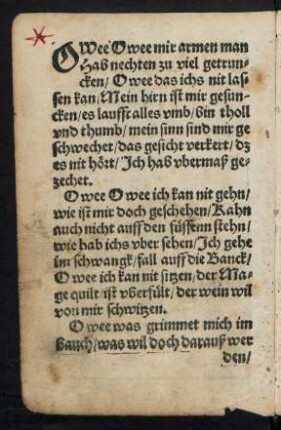 OWee O wee mir armen man
Hab nechten zu viel getrun-
cken/ O wee das ichs nit las-
sen kan/ Mein hirn ist mir gesun-
cken/ es laufft alles vmb/ bin tholl
vnd thumb/ mein sinn sind mir ge
schwechet/ das gesicht verkert/ dz
es nit hört/ Ich hab vbermaß ge-
zechet.
O wee O wee ich kan nit gehn/
wie ist mir doch geschehen/ Kahn
auch nicht auff den füssenn stehn/
wie hab ichs vber sehen/ Ich gehe
im schwangk/ fall auff die Banck/
O wee ich kan nit sitzen/ der Ma-
ge quilt/ ist vberfült/ der wein wil
von mir schwitzen.
O wee was grimmet mich im
Bauch/ was wil doch darauß wer
den/